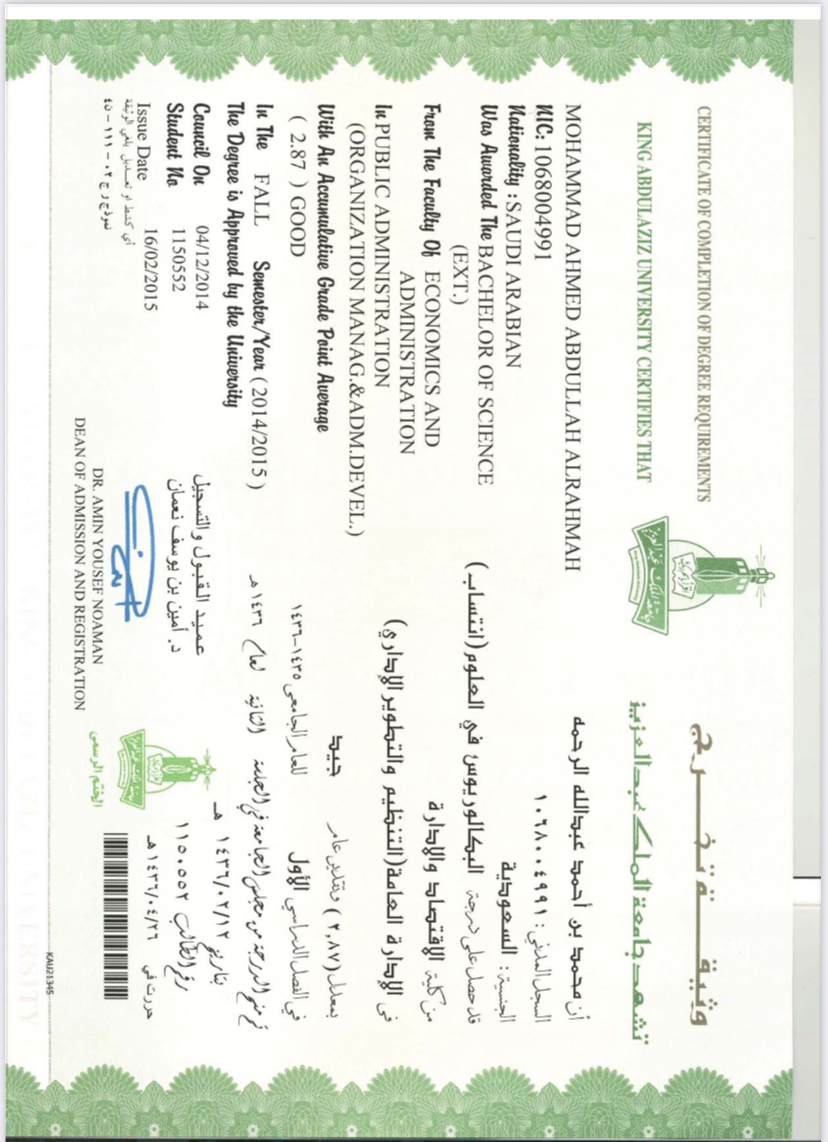 CERTIFICATE OF COMPLETION OF DEGREE REQUIREMENTS
KING ABDULAZIZ UNIVERSITY CERTIFIES THAT
MOHAMMAD AHMED ABDULLAH ALRAHMAH
NIC: 1068004991
Nationality : SAUDI ARABIAN
Was Awarded The BACHELOR OF SCIENCE
(EXT.)
From The Faculty Of ECONOMICS AND
ADMINISTRATION
In PUBLIC ADMINISTRATION
(ORGANIZATION MANAG.&ADM.DEVEL.)
With An Accumulative Grade Point Average
( 2.87 ) GOOD
In The FALL Semester/Year ( 2014/2015 )
The Degree is Approved by the University
Council On 04/12/2014
Student No 1150552
Issue Date 16/02/2015
أي كشط او تعديل يلغي الوثيقة
نموذج و ج ٠٢ - ١١١ - ٤٥
جامعة الملك عبدالعزيز
وثيقة تخرج
تشهد جامعة الملك عبدالعزيز
أن محمد بن أحمد عبدالله الرحمه
السجل المدني : ١٠٦٨٠٠٤٩٩١
الجنسية : السعودية
قد حصل على درجة البكالوريوس في العلوم (انتساب)
من كلية الاقتصاد والإدارة
في الإدارة العامة (التنظيم والتطوير الإداري)
بمعدل (٢,٨٧) وتقدير عام جيد
في الفصل الدراسي الأول للعام الجامعي ١٤٣٥-١٤٣٦
تم منح الدرجة من مجلس الجامعة في الجلسة الثانية لعام ١٤٣٦ هـ
بتاريخ ١٤٣٦/٠٢/١٢ هـ
رقم الطالب ١١٥٠٥٥٢
حررت في ١٤٣٦/٠٤/٢٦ هـ
عميد القبول والتسجيل
د. أمين بن يوسف نعمان
DR. AMIN YOUSEF NOAMAN
DEAN OF ADMISSION AND REGISTRATION
الختم الرسمي
KAU21345